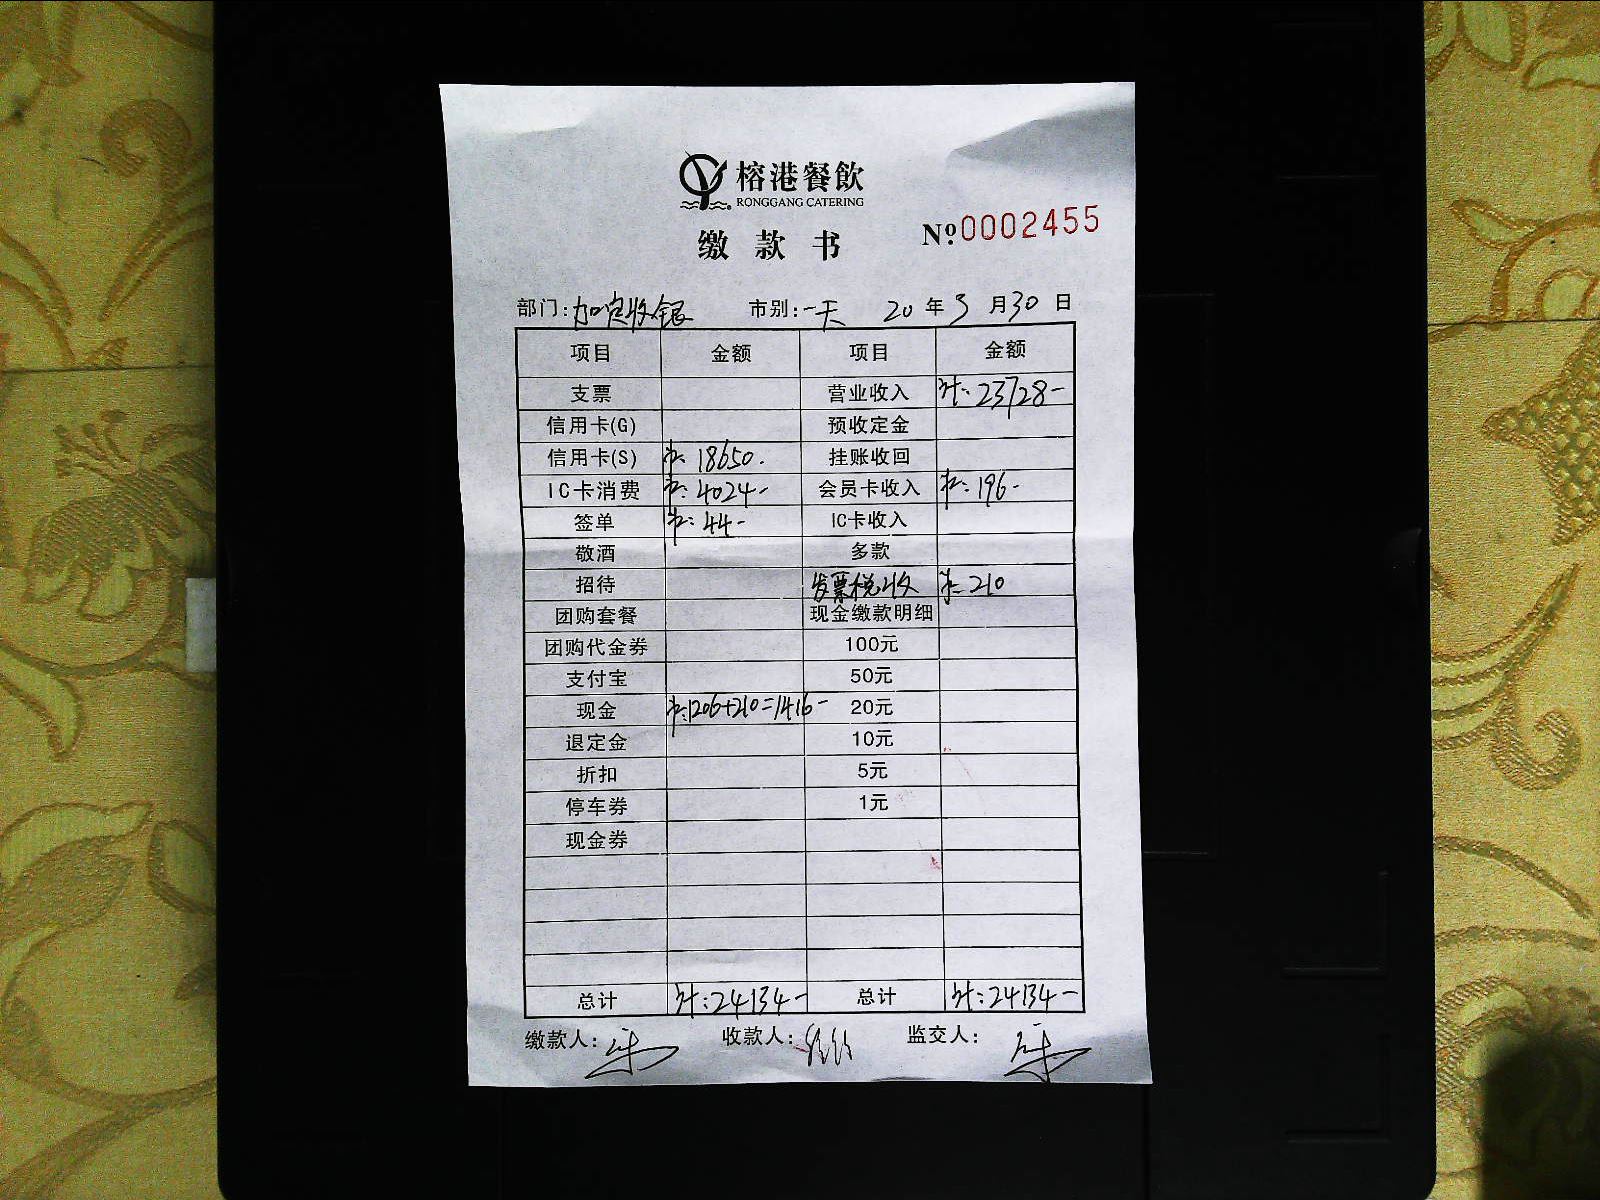 榕港餐飲
RONGGANG CATERING
缴款书 №0002455
部门:加宾收银 市别:一天 20 年 3 月 30 日
项目 金额 项目 金额
支票 营业收入 计:23728-
信用卡(G) 预收定金
信用卡(S) 18650. 挂账收回
IC卡消费 4024- 会员卡收入 196-
签单 44- IC卡收入
敬酒 多款
招待 发票税收 210
团购套餐 现金缴款明细
团购代金券 100元
支付宝 50元
现金 1206+210=1416- 20元
退定金 10元
折扣 5元
停车券 1元
现金券
总计 计:24134- 总计 计:24134-
缴款人: 收款人: 监交人: